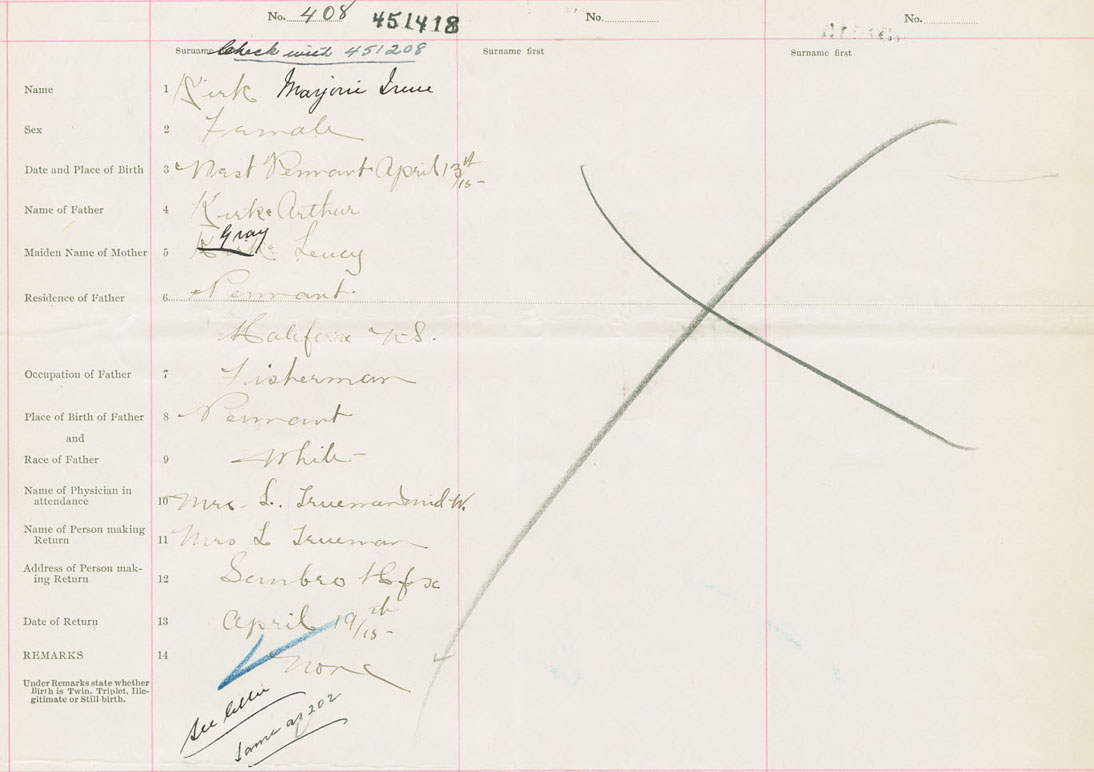 No. 408 451418 No. No.
Surname Check with 451208 Surname first Surname first
Name 1 Kirk Marjorie Irene
Sex 2 Female
Date and Place of Birth 3 West Pennant April 13th /15-
Name of Father 4 Kirke Arthur
Gray
Maiden Name of Mother 5 Kirke Leucy
Residence of Father 6 Pennant
Halifax N.S.
Occupation of Father 7 Fisherman
Place of Birth of Father 8 Pennant
and
Race of Father 9 White
Name of Physician in
attendance 10 Mrs. L. Trueman mid W.
Name of Person making
Return 11 Mrs L Trueman
Address of Person mak-
ing Return 12 Sambro Hfx
Date of Return 13 April 19th /15-
REMARKS 14 None
Under Remarks state whether
Birth is Twin, Triplet, Ille-
gitimate or Still-birth.
See
Same as 202